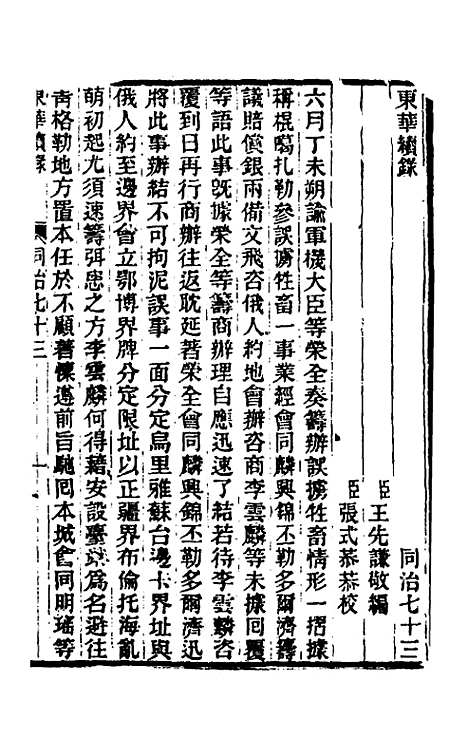 東華續錄
同治七十三
臣王先謙敬編
臣張式恭恭校
六月丁未朔諭軍機大臣等榮全奏籌辦誤擄牲畜情形一摺據
稱棍噶扎勒參誤擄牲畜一事業經會同麟興錦丕勒多爾濟籌
議賠償銀兩備文飛咨俄人約地會辦咨商李雲麟等未據回覆
等語此事既據榮全等籌商辦理自應迅速了結若待李雲麟咨
覆到日再行商辦往返耽延著榮全會同麟興錦丕勒多爾濟迅
將此事辦結不可拘泥誤事一面分定烏里雅蘇台邊卡界址與
俄人約至邊界會立鄂博界牌分定限址以正疆界布倫托海亂
萌初起尤須速籌弭患之方李雲麟何得藉安設臺站爲名避往
青格勒地方置本任於不顧著懍遵前旨馳回本城會同明瑤等
東華續錄
同治七十三
一